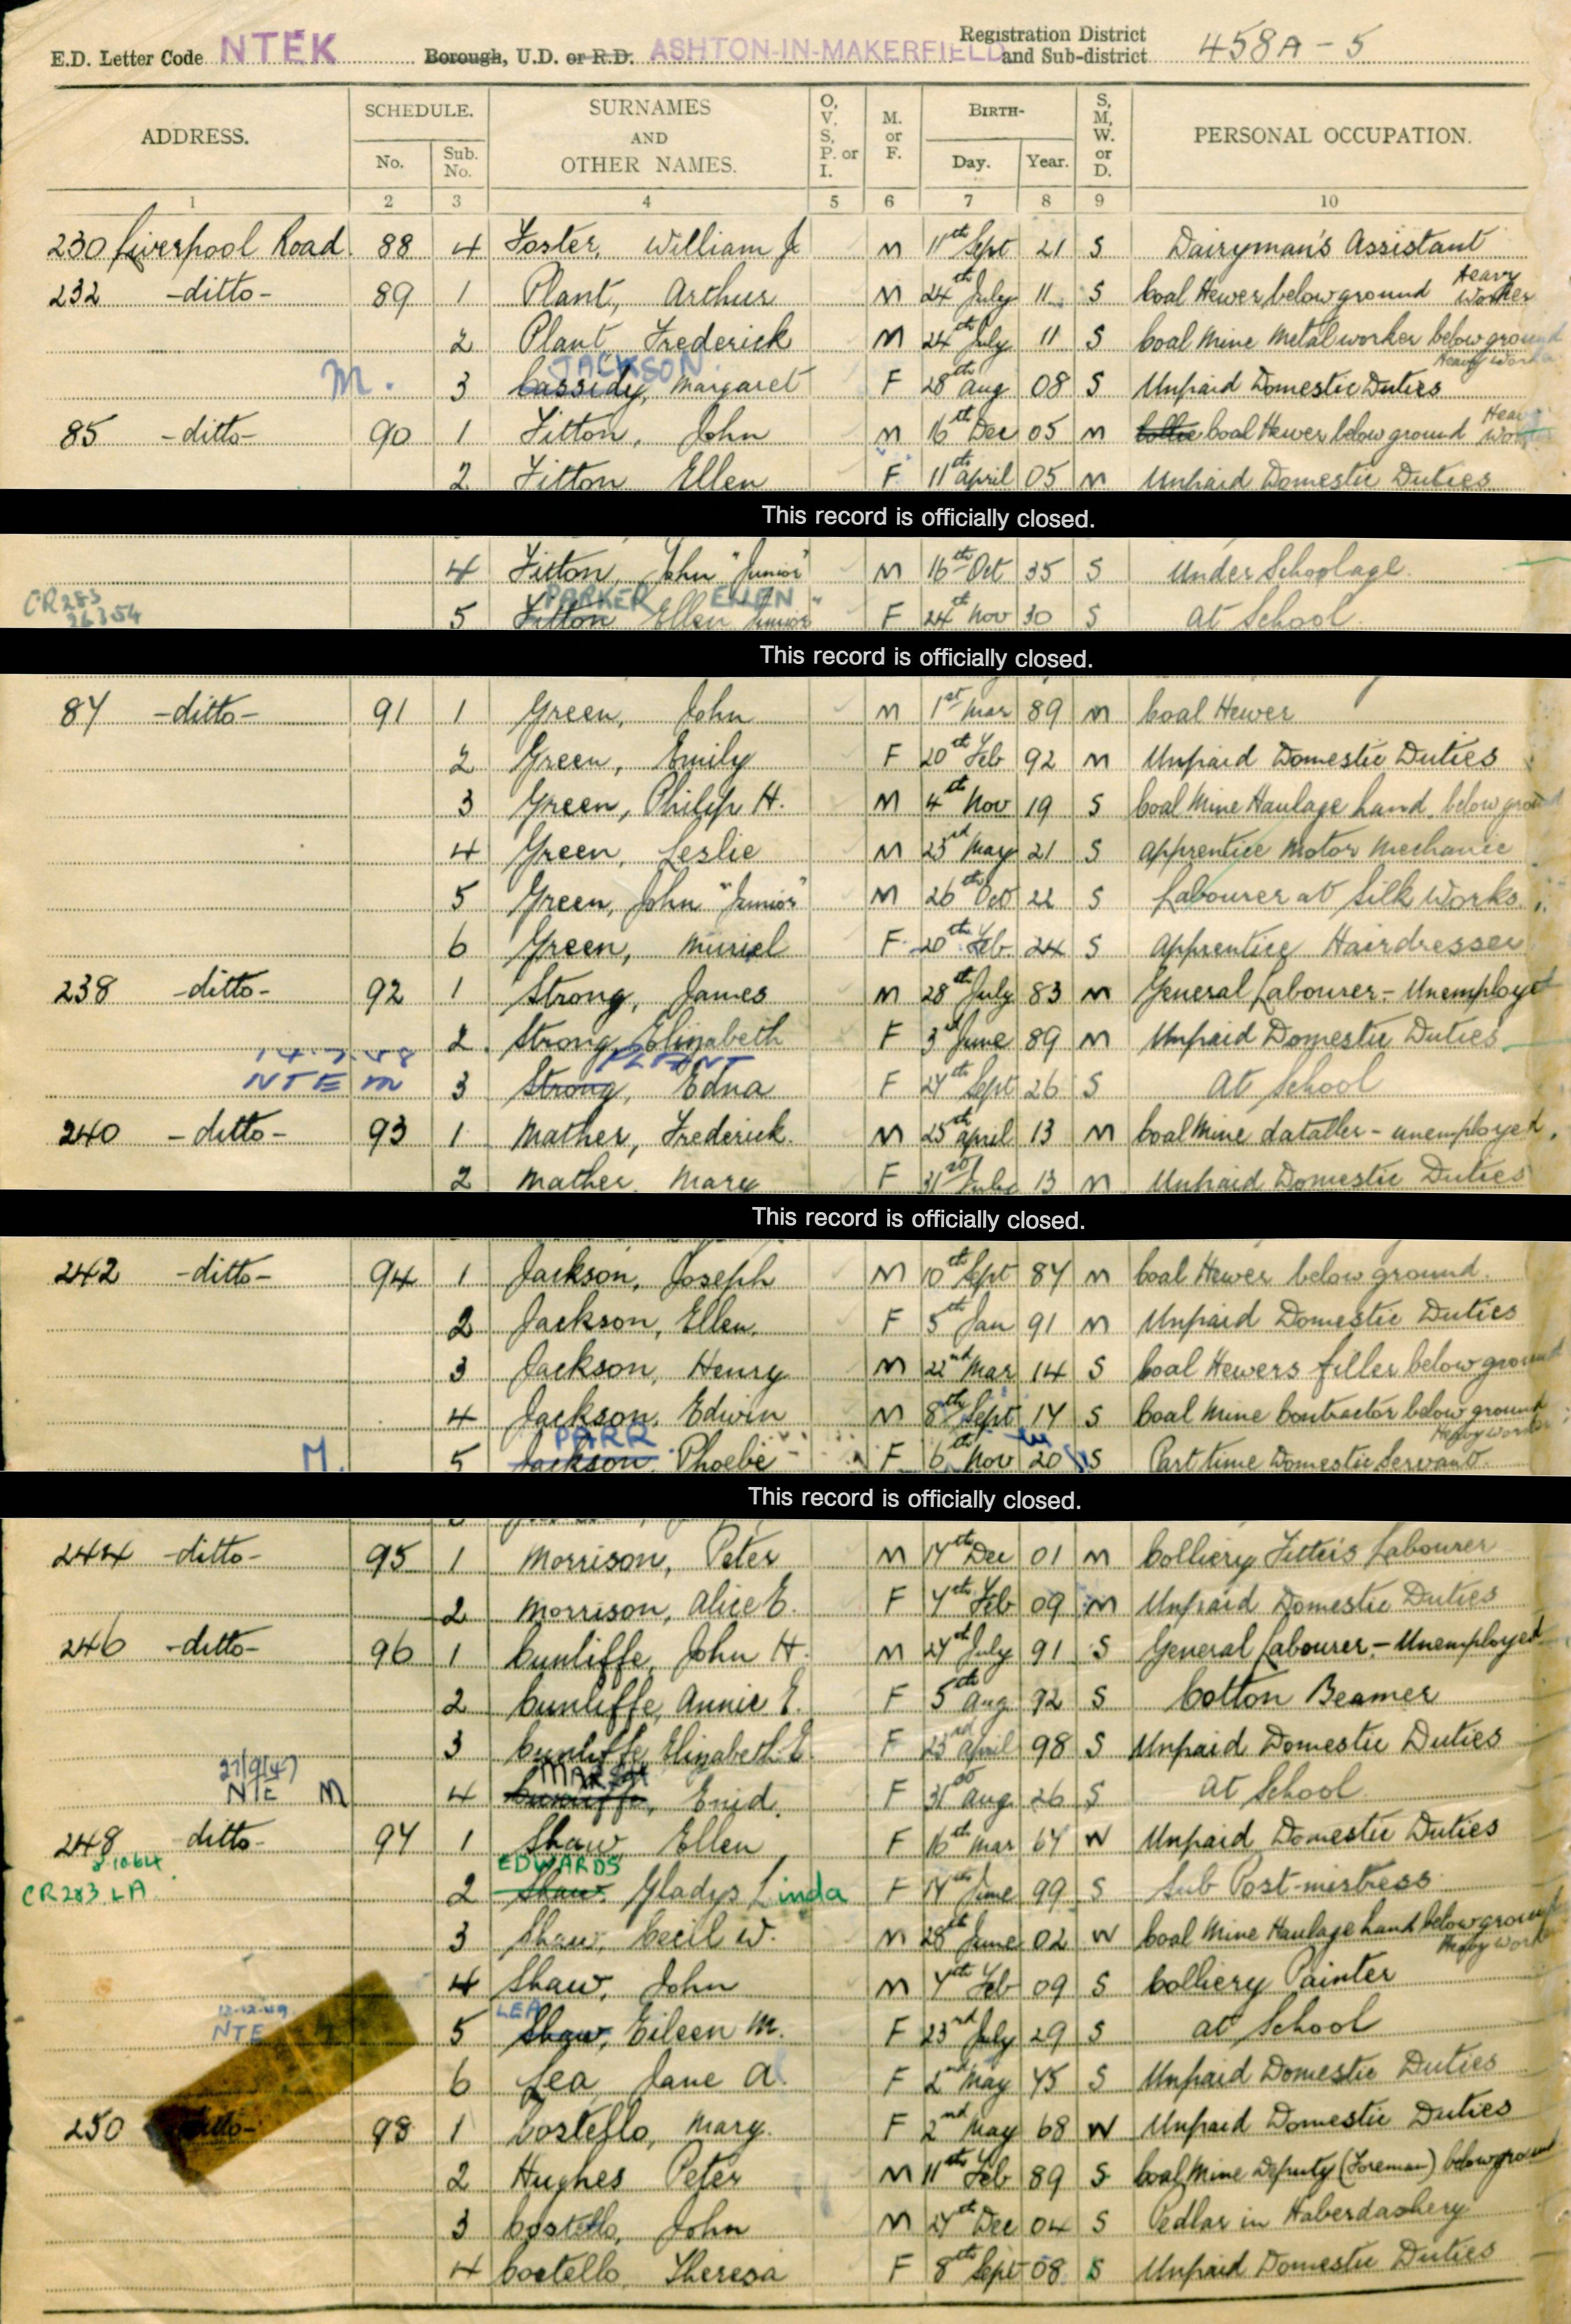 E.D. Letter Code NTEK Borough, U.D. or R.D. ASHTON-IN-MAKERFIELD Registration District and Sub-district 458A-5
ADDRESS. SCHEDULE. No. Sub. No. SURNAMES AND OTHER NAMES. O, V, S, P. or I. M. or F. BIRTH- Day. Year. S, M, W. or D. PERSONAL OCCUPATION.
1 2 3 4 5 6 7 8 9 10
230 Liverpool Road 88 4 Foster, William J M 11th Sept 21 S Dairyman's Assistant
232 -ditto- 89 1 Plant, Arthur M 24th July 11 S Coal Hewer below ground Heavy Worker
2 Plant Frederick M 24th July 11 S Coal Mine Metal worker below ground Heavy Worker
JACKSON
M. 3 Cassidy, Margaret F 28th Aug 08 S Unpaid Domestic Duties
85 -ditto- 90 1 Fitton, John M 16th Dec 05 M Coal Hewer below ground Heavy Worker
2 Fitton Ellen F 11th April 05 M Unpaid Domestic Duties
This record is officially closed.
4 Fitton, John "Junior" M 16th Oct 35 S Under School age.
CR283 PARKER ELLEN
26354 5 Fitton Ellen Junior" F 24th Nov 30 S At School.
This record is officially closed.
87 -ditto- 91 1 Green, John M 1st Mar 89 M Coal Hewer
2 Green, Emily F 20th Feb 92 M Unpaid Domestic Duties
3 Green, Philip H. M 4th Nov 19 S Coal Mine Haulage hand, below ground
4 Green, Leslie M 23rd May 21 S Apprentice Motor Mechanic
5 Green, John "Junior" M 26th Oct 22 S Labourer at Silk Works
6 Green, Muriel F 20th Feb. 24 S Apprentice Hairdresser
238 -ditto- 92 1 Strong, James M 28th July 83 M General Labourer - Unemployed
2 Strong, Elizabeth F 3rd June 89 M Unpaid Domestic Duties
14.7.48 PLANT
NTE M 3 Strong, Edna F 27th Sept 26 S At School
240 -ditto- 93 1 Mather, Frederick. M 25th April 13 M Coal Mine dataller - unemployed.
2 Mather, Mary F 31st July 13 M Unpaid Domestic Duties
This record is officially closed.
242 -ditto- 94 1 Jackson, Joseph M 10th Sept 87 M Coal Hewer below ground.
2 Jackson, Ellen. F 5th Jan 91 M Unpaid Domestic Duties
3 Jackson, Henry M 22nd Mar 14 S Coal Hewers filler below ground
4 Jackson, Edwin M 8th Sept 17 S Coal Mine Contractor below ground Heavy worker
PARR
M. 5 Jackson, Phoebe F 6th Nov 20 S Part time Domestic Servant.
This record is officially closed.
244 -ditto- 95 1 Morrison, Peter M 17th Dec 01 M Colliery Fitter's Labourer
2 Morrison, Alice E. F 7th Feb 09 M Unpaid Domestic Duties
246 -ditto- 96 1 Cunliffe, John H. M 27th July 91 S General Labourer - Unemployed
2 Cunliffe, Annie E. F 5th Aug 92 S Cotton Beamer
3 Cunliffe Elizabeth E. F 23rd April 98 S Unpaid Domestic Duties
27/9/47 MARSH
NTE M 4 Cunliffe, Enid. F 31st Aug 26 S At School
248 ditto- 97 1 Shaw Ellen F 16th Mar 67 W Unpaid Domestic Duties
EDWARDS
CR283 LA 2 Shaw Gladys Linda F 17th June 99 S Sub Post-mistress
3 Shaw, Cecil W. M 28th June 02 W Coal Mine Haulage hand below ground Heavy Work
4 Shaw, John M 7th Feb 09 S Colliery Painter
12-12-49 LEA
NTE 5 Shaw, Eileen M. F 23rd July 29 S At School
6 Lea Jane A. F 2nd May 75 S Unpaid Domestic Duties
250 ditto- 98 1 Costello, Mary. F 2nd May 68 W Unpaid Domestic Duties
2 Hughes Peter M 11th Feb 89 S Coal Mine Deputy (Foreman) below ground
3 Costello, John M 27th Dec 04 S Pedlar in Haberdashery
4 Costello, Theresa F 8th Sept 08 S Unpaid Domestic Duties